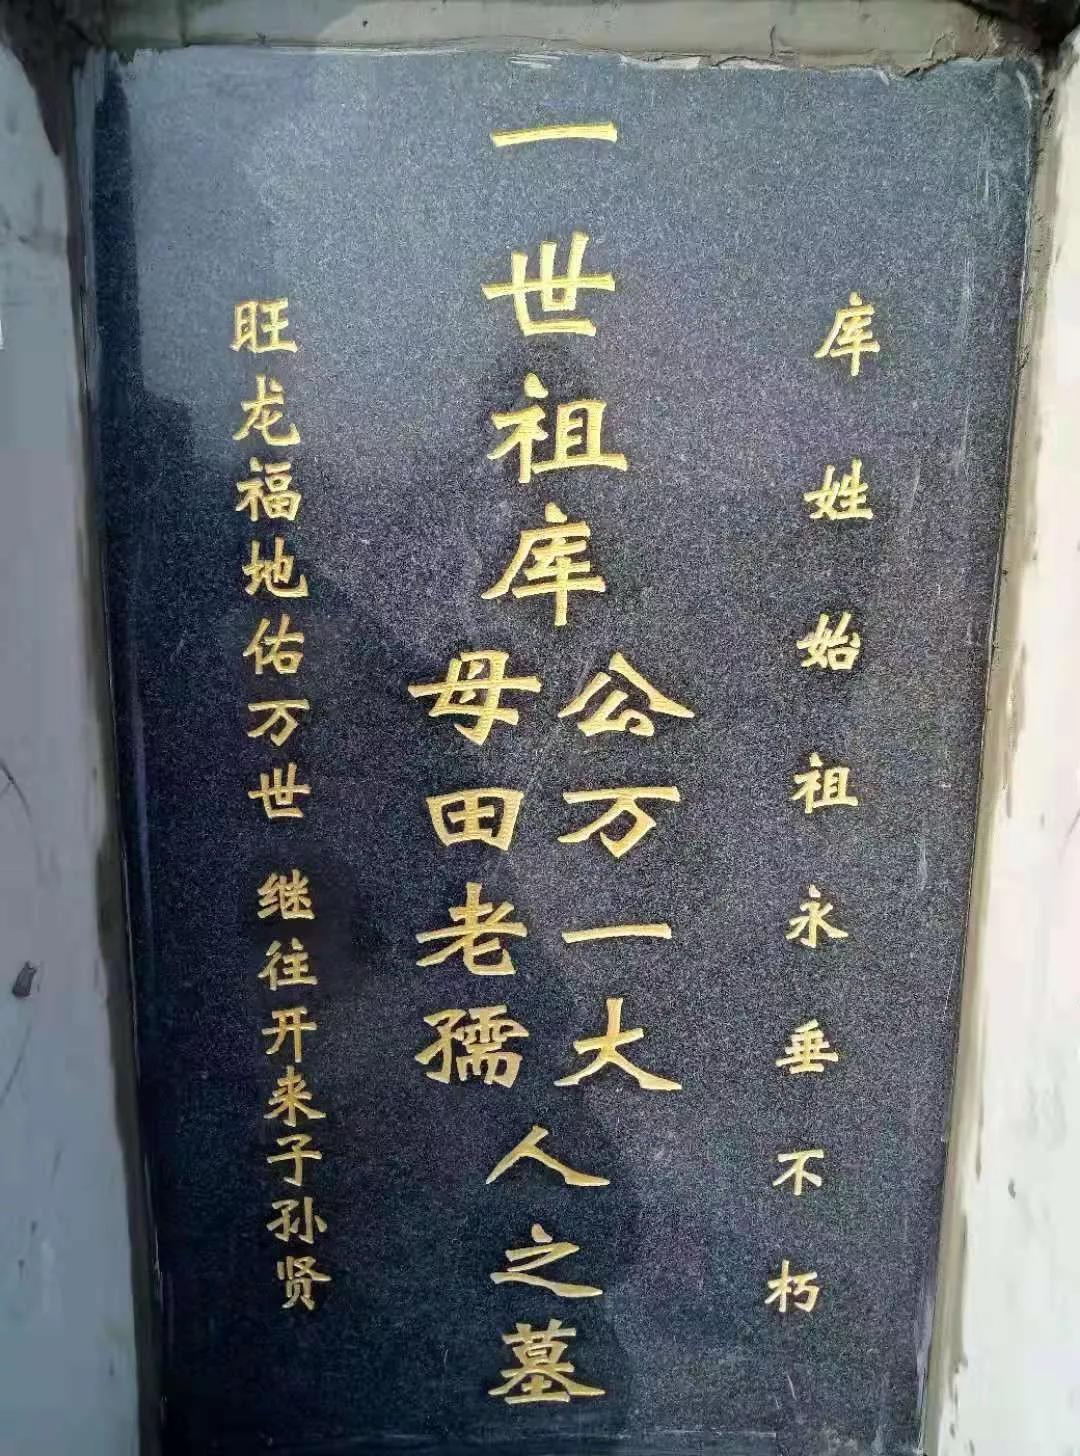 库姓始祖永垂不朽
一世祖库
公万一大
母田老孺
人之墓
旺龙福地佑万世 继往开来子孙贤